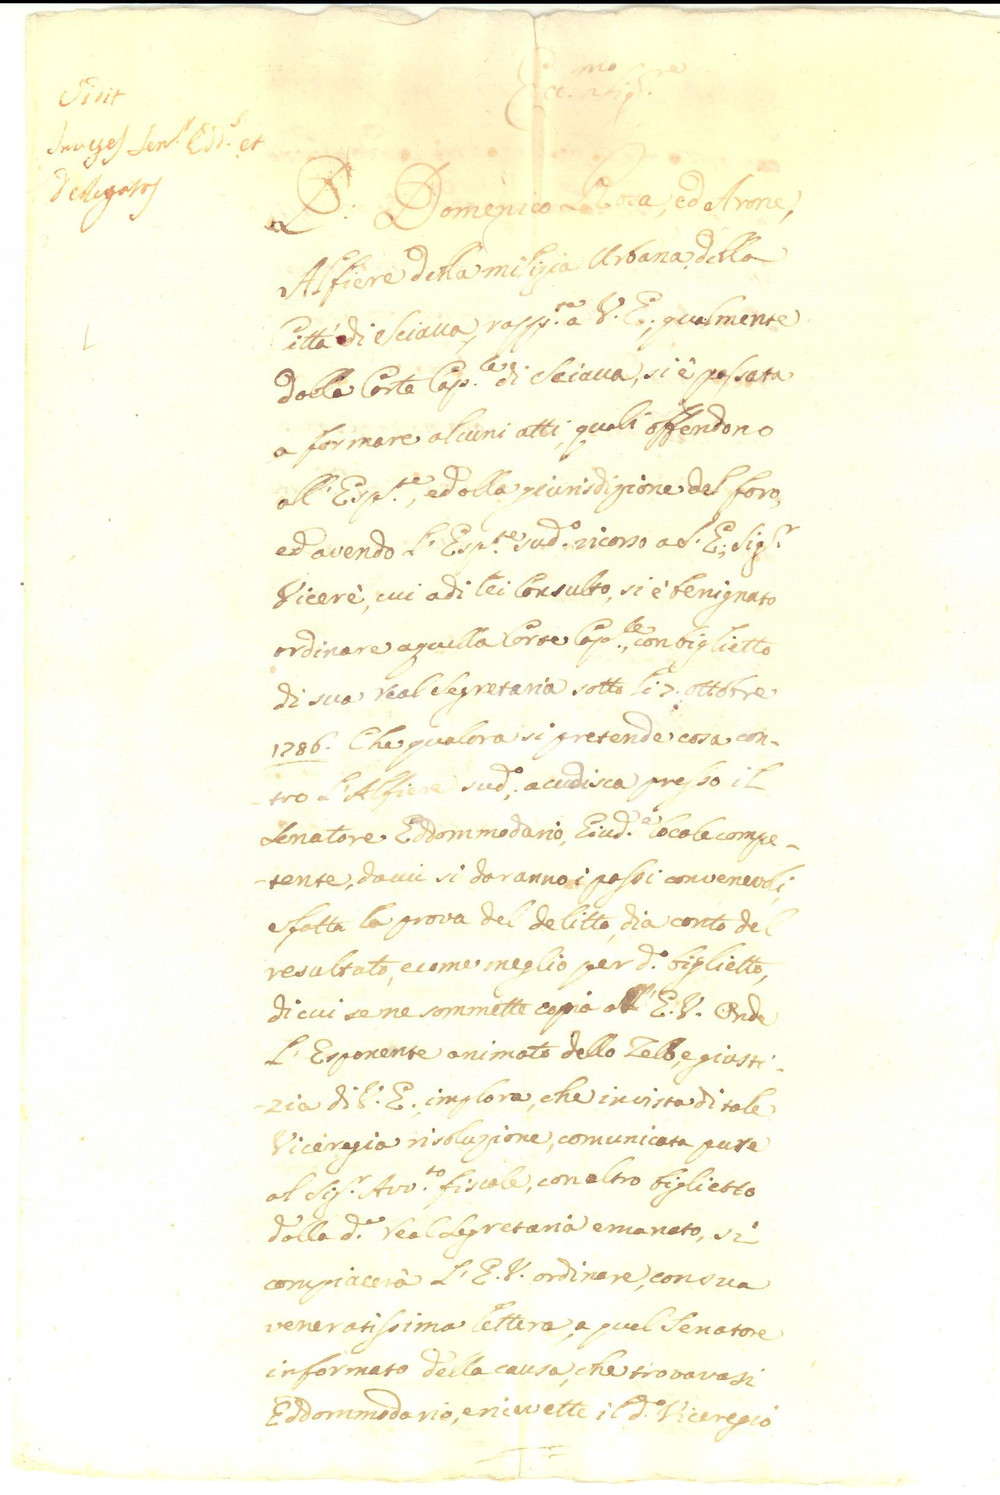 Ecc.mo Sig.re
Sen.r Edd.s et
Delegatos
D. Domenico Rosa, ed Arone,
Alfiere della milizia Urbana della
Città di Sciacca, rapp.ta a V. E., qualmente
dalla Corte Cap.le di Sciacca, si è passata
a formare alcuni atti, quali offendono
all' Esp.te, ed alla giurisdizione del foro,
ed avendo l' Esp.te sud.o ricorso a S. E., Sig.r
Vicerè, cui a di lei Consulto, si è benignato
ordinare a quella Corte Cap.le, con biglietto
di sua Real Segretaria sotto li 7. ottobre
1786. Che qualora si pretende cosa con-
-tro l' Alfiere sud.o, acudisca presso il
Senatore Eddommodario, Giud.e locale compe-
-tente, da cui si daranno i passi convenevoli,
e fatta la prova del delitto, dia conto del
resultato, e come meglio per d.o biglietto,
di cui se ne sommette copia all' E. V. Onde
l' Esponente animato dello Zelo, e giusti-
-zia di V. E., implora, che in vista di tale
Viceregia risoluzione, comunicata pure
al Sig.r Avv.to fiscale, con altro biglietto
dalla d.a Real Segretaria emanato, si
compiacerà l' E. V. ordinare, con sua
veneratissima lettera, a quel Senatore
informato della causa, che trovavasi
Eddommodario, e ricevette il d.o Viceregio